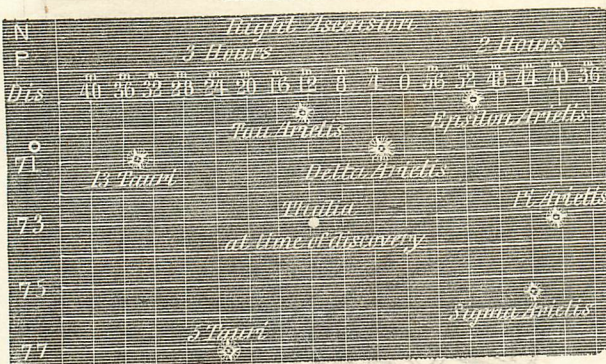 N
P
Dis
Right Ascension
3 Hours 2 Hours
m m m m m m m m m m m m m m m m
40 36 32 28 24 20 16 12 8 4 0 56 52 48 44 40 36
Tau Arietis
Epsilon Arietis
°
71
13 Tauri
Delta Arietis
Pi Arietis
73
Thalia
at time of discovery
75
Sigma Arietis
5 Tauri
77